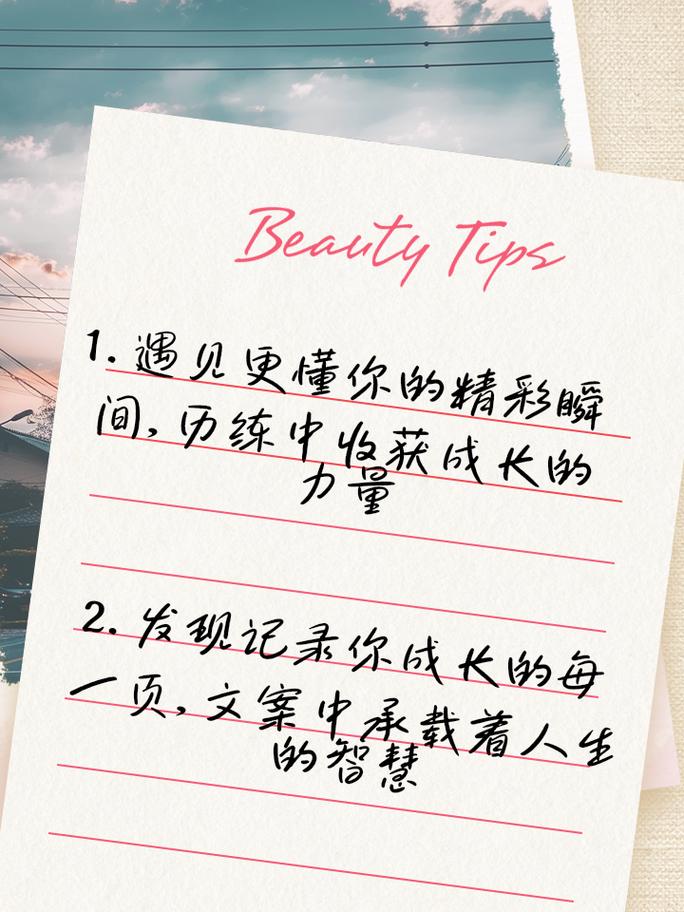 Beauty Tips
1. 遇见更懂你的精彩瞬
间,历练中收获成长的
力量
2. 发现记录你成长的每
一页,文案中承载着人生
的智慧